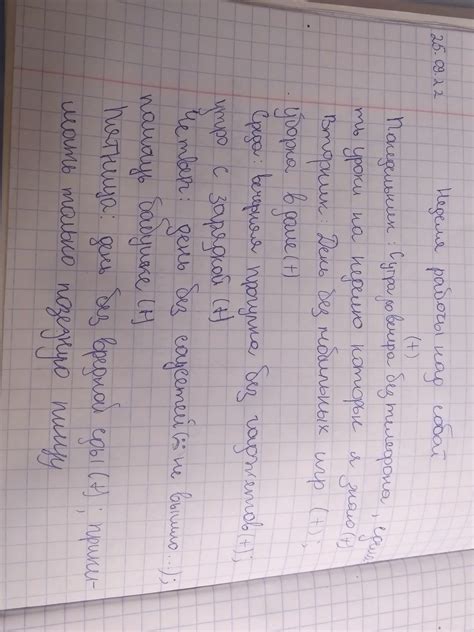 25.09.22
Неделя работы над собой
(+)
Понедельник: Сутра до вечера без телефона, сдела
ть уроки на неделю которые я знаю (+)
Вторник: День без мобильных игр (+);
уборка в доме (+)
Среда: вечерняя прогулка без гаджетов (+);
утро с зарядкой (+)
Четверг: день без соцсетей (:( не вышло...);
помощь бабушке (+)
Пятница: день без вредной еды (+); прини-
мать только полезную пищу